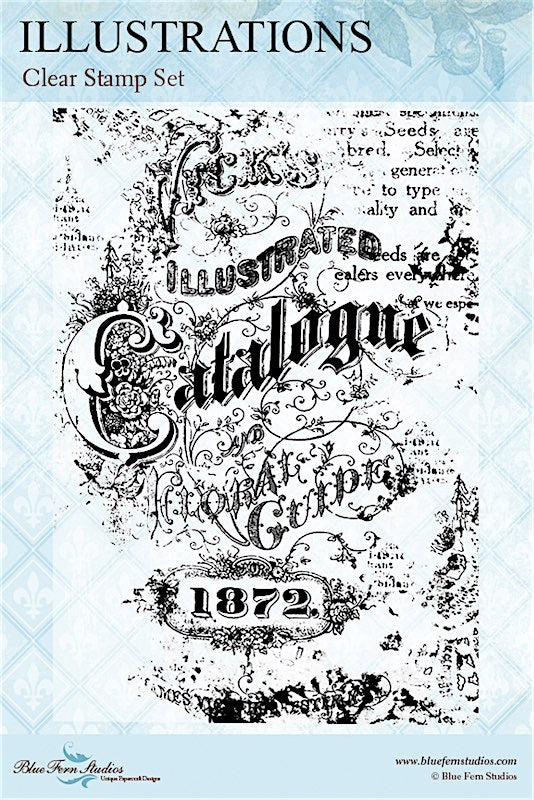 ILLUSTRATIONS
Clear Stamp Set
Seeds are
bred. Select
general
to type
ality and
VICK'S
ILLUSTRATED
eeds are
ealers everywhere
we espe
Catalogue
AND
FLORAL
GUIDE
FOR
1872.
JAMES VICK
Blue Fern Studios
Unique Papercraft Designs
www.bluefernstudios.com
© Blue Fern Studios